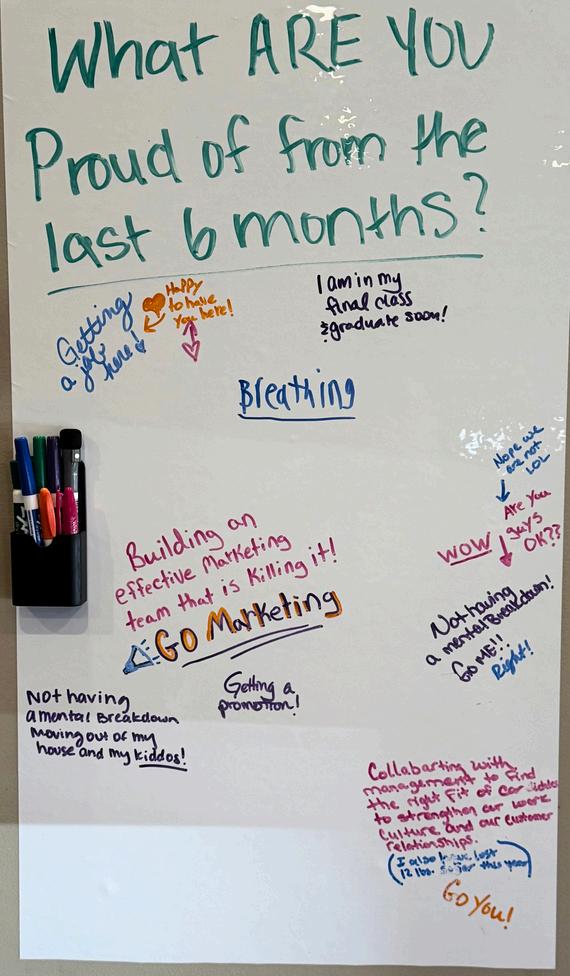 What ARE YOU
Proud of from the
last 6 months?
Getting
a job
here!
Happy
to have
You here!
I am in my
final class
& graduate soon!
Breathing
Nope we
are not
LOL
Are You
guys
OK??
WOW
Building an
effective Marketing
team that is Killing it!
GO Marketing
Not having
a mental Breakdown!
Go ME!!
Right!
Getting a
promotion!
Not having
a mental Breakdown
Moving out of my
house and my kiddos!
Collabarting with
management to find
the right fit of
to strengthen our work
culture and our customer
relationships.
(I also have lost
12 lbs. so far this year)
GO YOU!